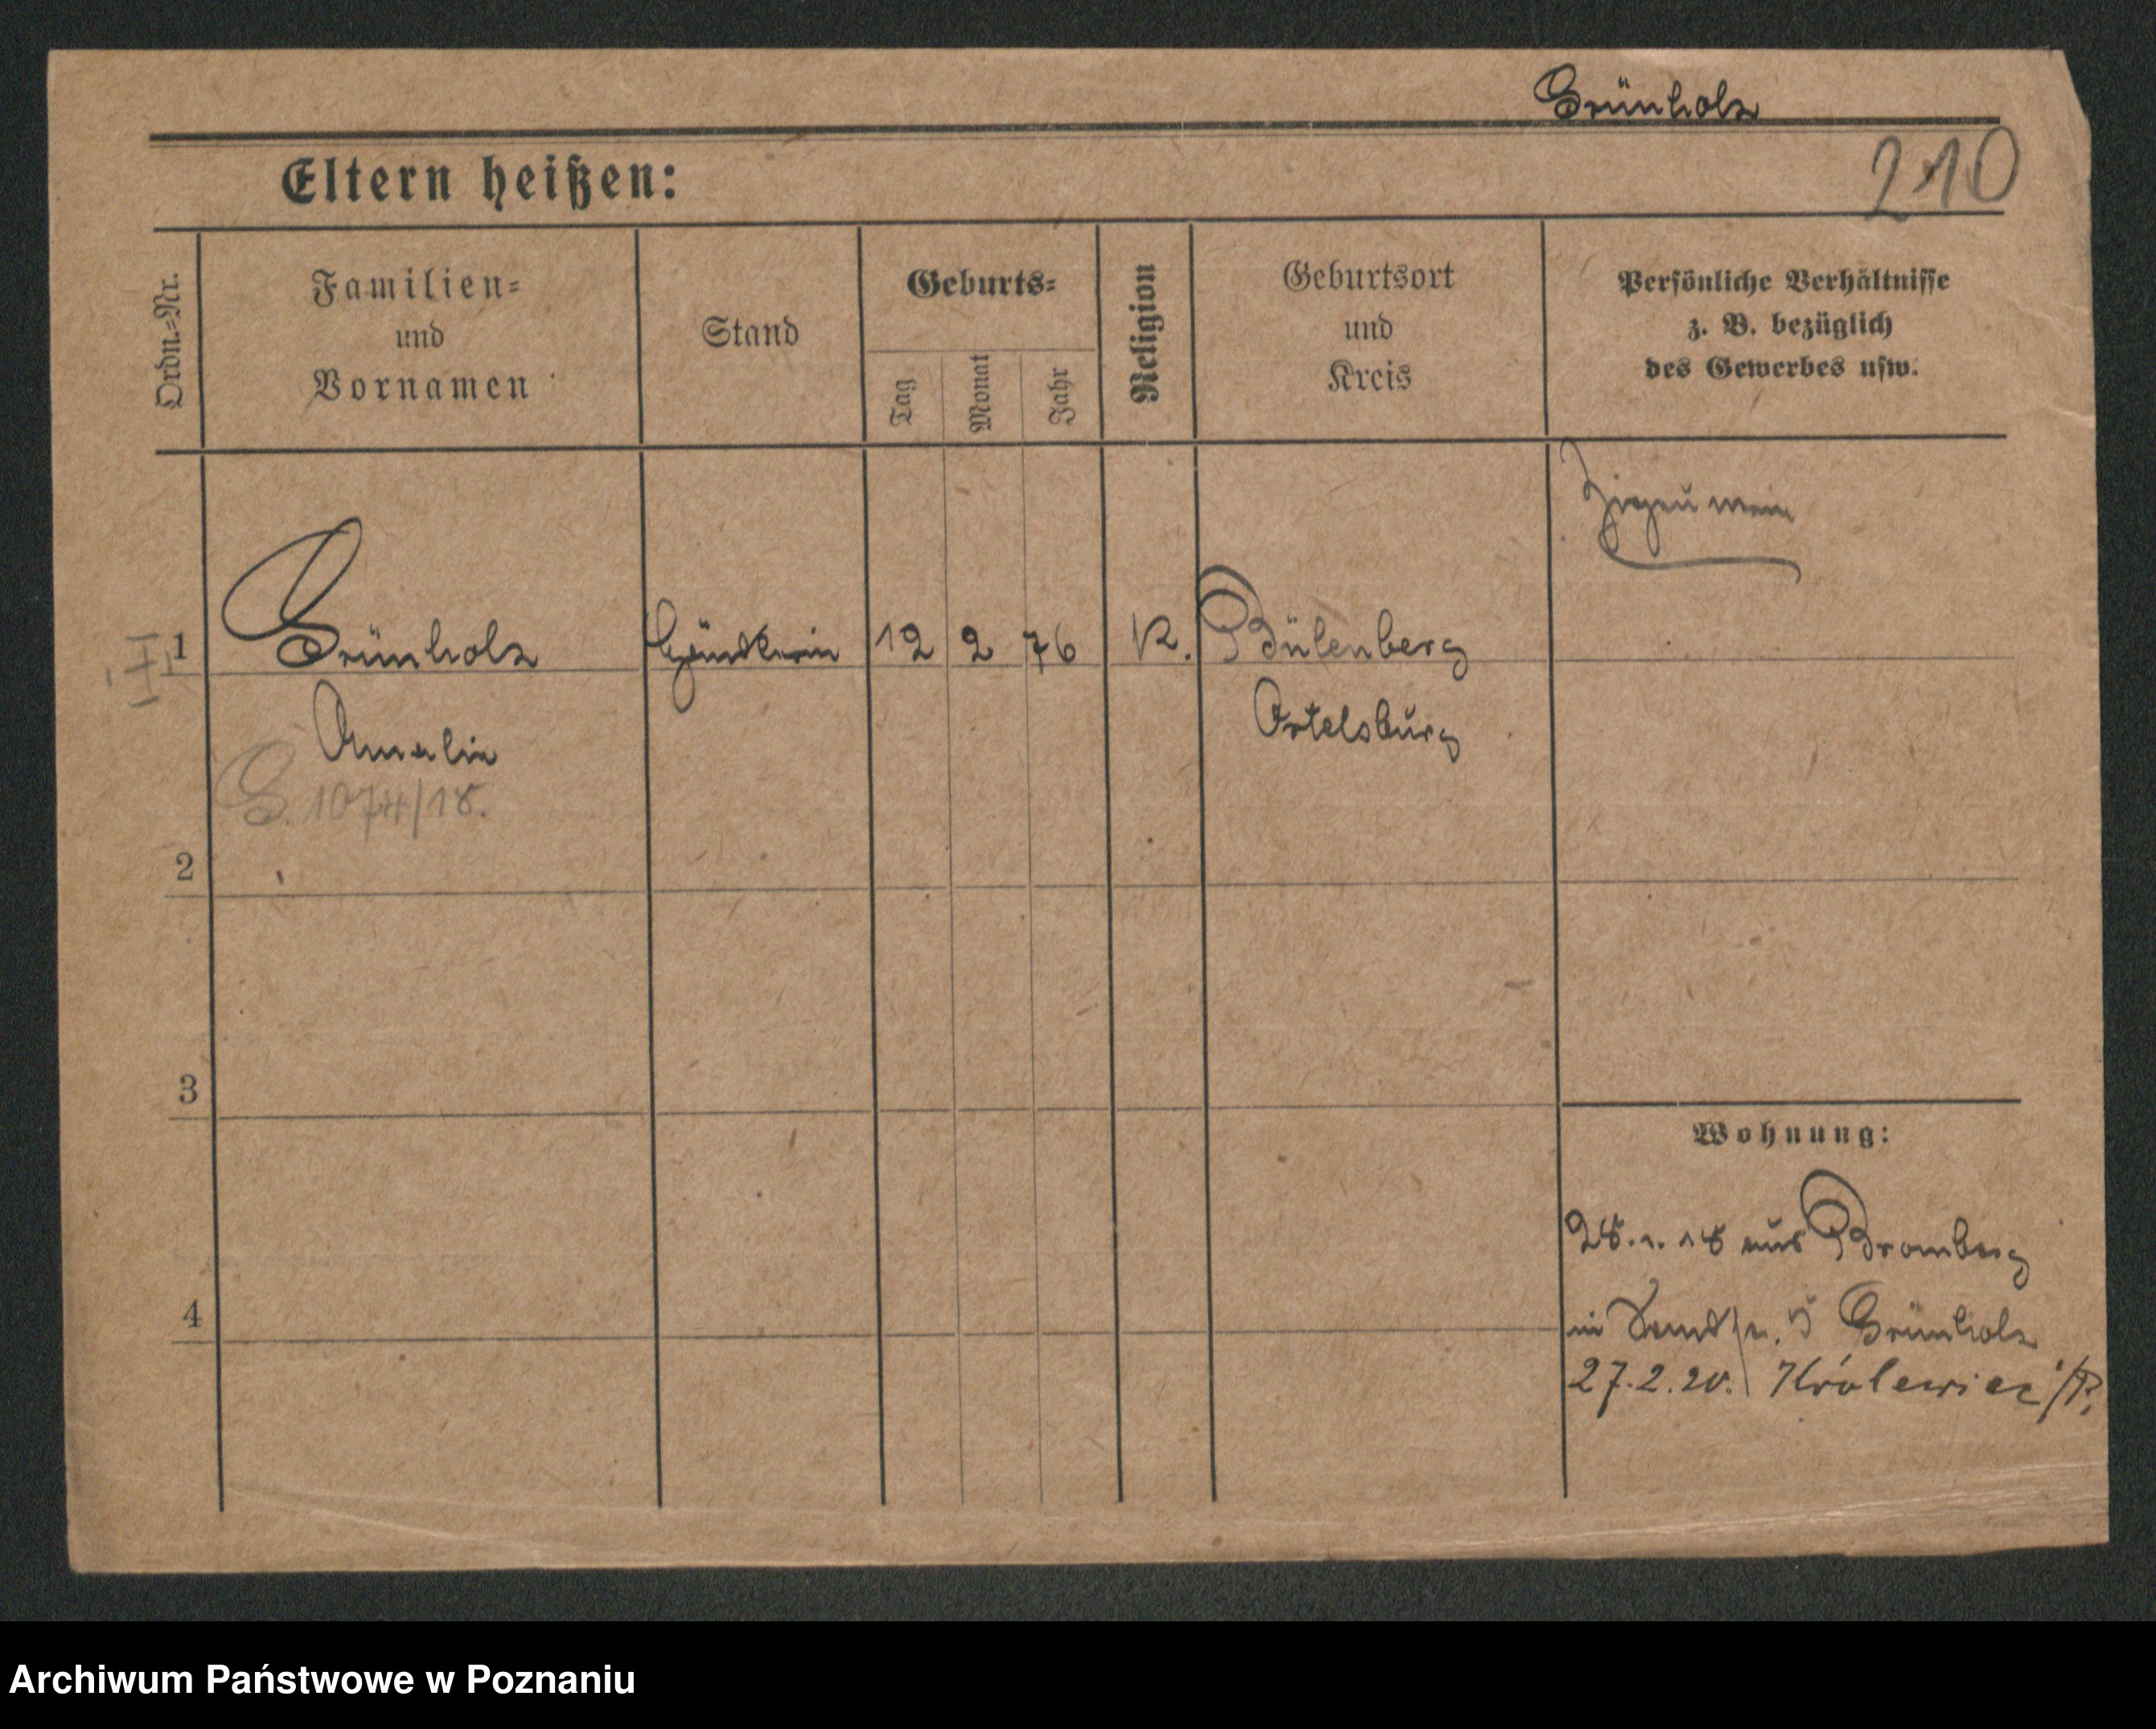 Grünholz
210
Eltern heißen:
Ordn.-Nr.
Familien-
und
Vornamen
Stand
Geburts-
Tag
Monat
Jahr
Religion
Geburtsort
und
Kreis
Persönliche Verhältnisse
z. B. bezüglich
des Gewerbes usw.
1
Grünholz
Händlerin
12
2
76
K.
Bülenberg
Amalie
Ortelsburg
G. 1074/18.
2
3
4
Wohnung:
28.1.18 aus Bromberg
in 5 Grünholz
27.2.20. Królewiec /P.
Archiwum Państwowe w Poznaniu